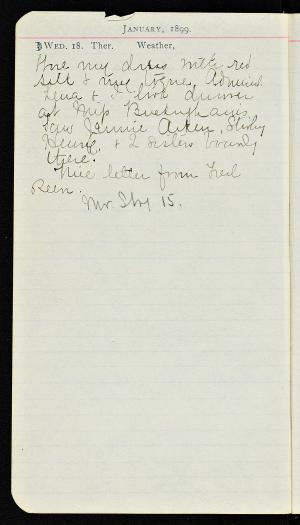 JANUARY, 1899.
WED. 18. Ther. Weather,
my dress with red
silk & my toque. Admired.
Lena & I took dinner
at Miss Buckinghams.
Saw Jennie Aiken, Shirley
Henrie, & 2 sisters
there.
Nice letter from Fred
Been.
Mr. 15.